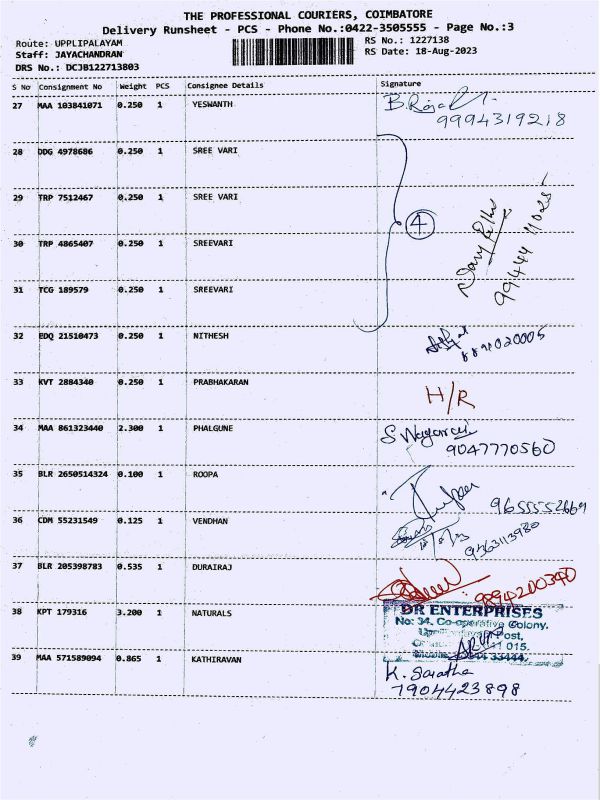 THE PROFESSIONAL COURIERS, COIMBATORE
Delivery Runsheet - PCS - Phone No.:0422-3505555 - Page No.:3
Route: UPPLIPALAYAM
Staff: JAYACHANDRAN
DRS No.: DCJB122713803
RS No.: 1227138
RS Date: 18-Aug-2023
S No Consignment No Weight PCS Consignee Details Signature
27 MAA 103841071 0.250 1 YESWANTH
9994319218
28 DDG 4978686 0.250 1 SREE VARI
29 TRP 7512467 0.250 1 SREE VARI
4
99444 11025
30 TRP 4865407 0.250 1 SREEVARI
31 TCG 189579 0.250 1 SREEVARI
32 EDQ 21510473 0.250 1 NITHESH
33 KVT 2884340 0.250 1 PRABHAKARAN
H/R
34 MAA 861323440 2.300 1 PHALGUNE
9047770560
35 BLR 2650514324 0.100 1 ROOPA
9655552669
36 CDM 55231549 0.125 1 VENDHAN
37 BLR 205398783 0.535 1 DURAIRAJ
9894200340
38 KPT 179316 3.200 1 NATURALS
DR ENTERPRISES
No: 34, Co-operative Colony,
Post,
015.
39 MAA 571589094 0.865 1 KATHIRAVAN
K. Saratha
7904423898